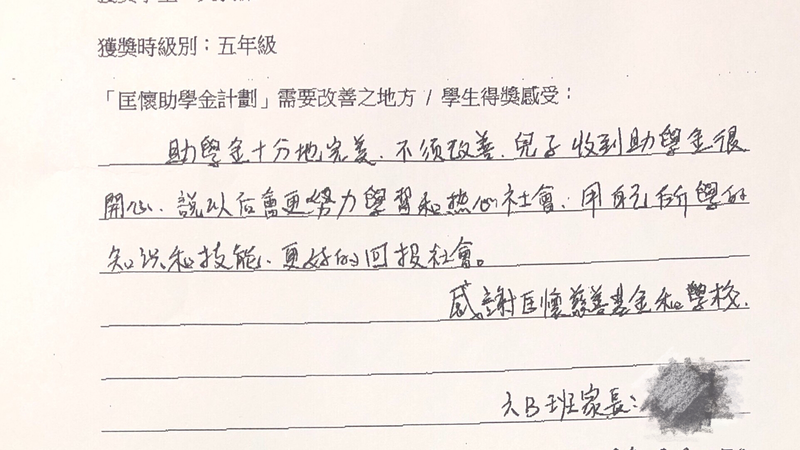 獲獎時級別：五年級
「匡懷助學金計劃」需要改善之地方 / 學生得獎感受：
助學金十分地完美、不須改善、兒子收到助學金很
開心、說以后會更努力學習和热心社會、用自己所學的
知识和技能、更好的回投社會。
感謝匡懷慈善基金和學校、
六B班家長：